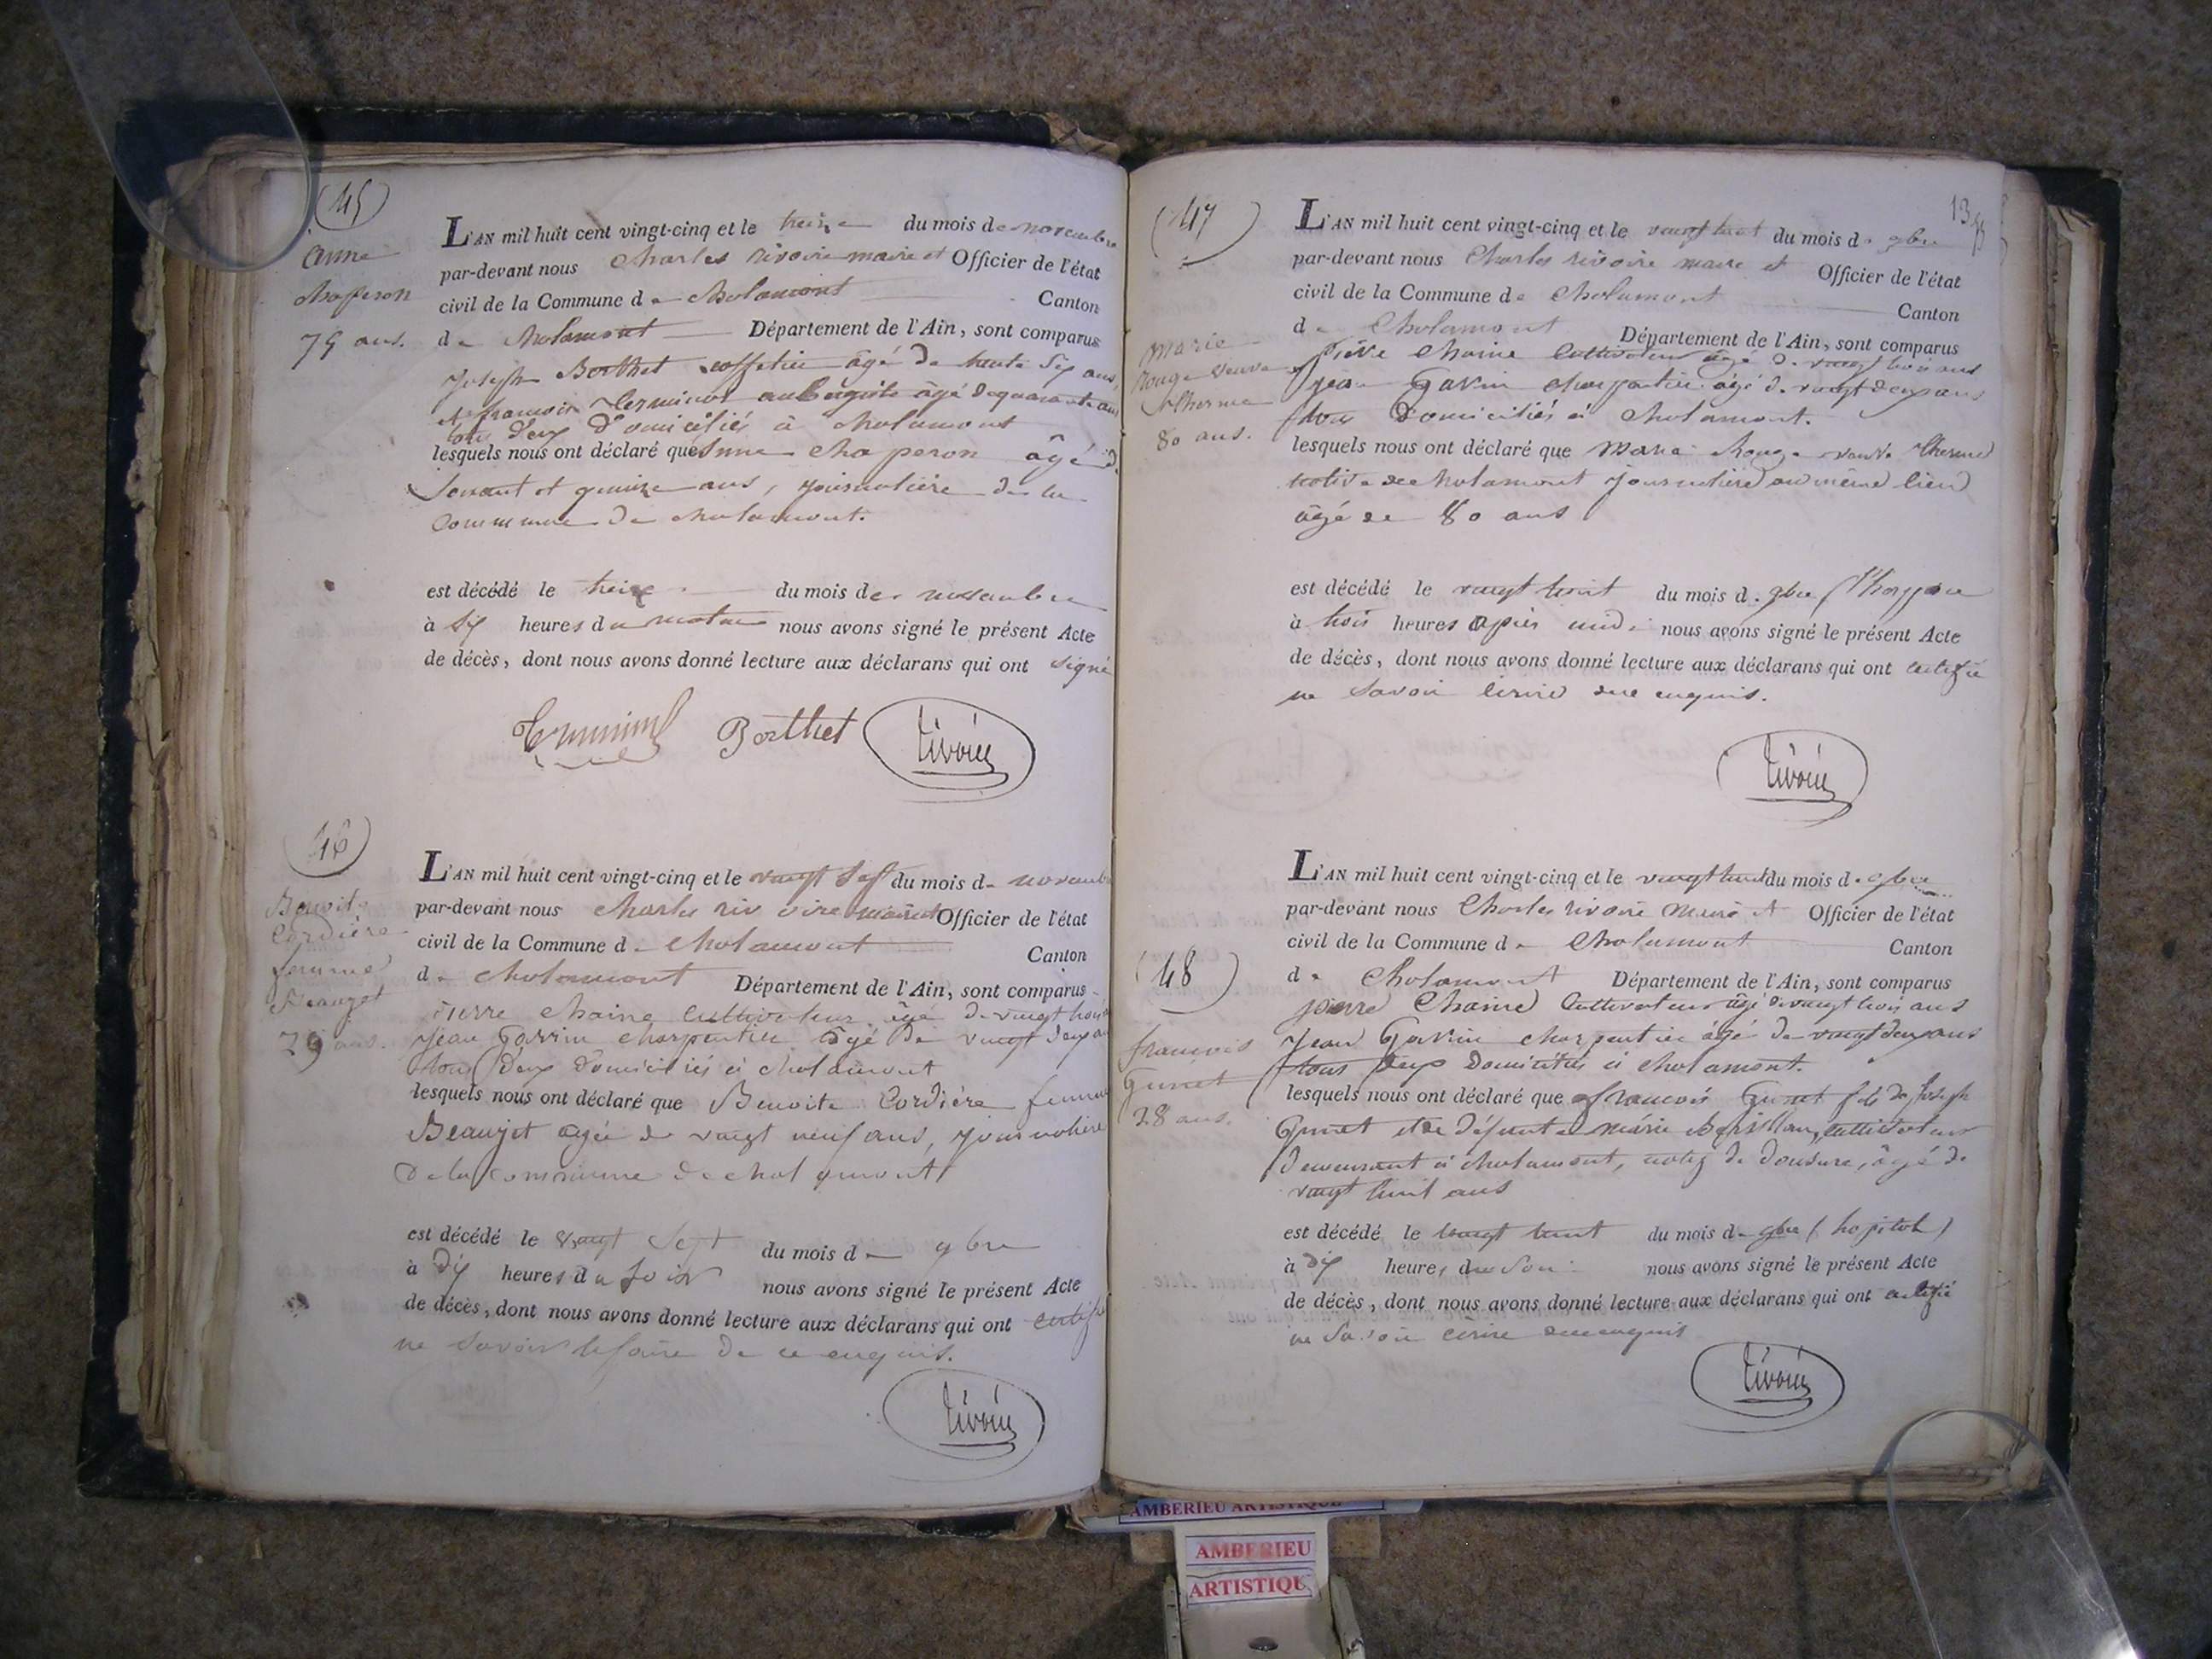 (45)
anne
chapperon
75 ans.
L'AN mil huit cent vingt-cinq et le treize du mois de novembre
par-devant nous Charles rivoire maire et Officier de l'état
civil de la Commune de Cholamont Canton
de Cholamont Département de l'Ain, sont comparus
Joseph Berthet âgé de trente six ans
et françois aubergiste âgé de quarante ans
tous deux domiciliés à cholamont
lesquels nous ont déclaré que anne chaperon âgé de
soixant et quinze ans, journalière de la
commune de cholamont.
est décédé le treize du mois de novembre
à six heures du matin nous avons signé le présent Acte
de décès, dont nous avons donné lecture aux déclarans qui ont signé
Berthet rivoire
(46)
Benoite
Cordière
femme
Beaujet
29 ans.
L'AN mil huit cent vingt-cinq et le vingt sept du mois de novembre
par-devant nous Charles rivoire maire et Officier de l'état
civil de la Commune de Cholamont Canton
de cholamont Département de l'Ain, sont comparus
Pierre Chaine cultivateur âgé de vingt trois
Jean Gavrin charpentier âgé de vingt deux ans
tous deux domiciliés à cholamont
lesquels nous ont déclaré que Benoite Cordière femme
Beaujet agée de vingt neuf ans, journalière
de la commune de cholamont
est décédé le vingt sept du mois de 9bre
à dix heures du soir nous avons signé le présent Acte
de décès, dont nous avons donné lecture aux déclarans qui ont certifié
ne savoir le faire de ce enquis.
rivoire
13
(47)
marie
rouge veuve
therme
80 ans.
L'AN mil huit cent vingt-cinq et le vingt huit du mois de 9bre
par-devant nous Charles rivoire maire et Officier de l'état
civil de la Commune de Cholamont Canton
de Cholamont Département de l'Ain, sont comparus
Chaine cultivateur âgé de vingt trois ans
jean Gavrin charpentier âgé de vingt deux ans
tous domiciliés à cholamont.
lesquels nous ont déclaré que marie rouge veuve therme
native de cholamont journalière au même lieu
âgé de 80 ans
est décédé le vingt huit du mois de 9bre
à trois heures après midi nous avons signé le présent Acte
de décès, dont nous avons donné lecture aux déclarans qui ont certifié
ne savoir écrire de ce enquis.
rivoire
(48)
françois
Gunet
28 ans.
L'AN mil huit cent vingt-cinq et le vingt huit du mois de 9bre
par-devant nous Charles rivoire maire et Officier de l'état
civil de la Commune de Cholamont Canton
de Cholamont Département de l'Ain, sont comparus
pierre Chaine cultivateur âgé de vingt trois ans
Jean Gavrin charpentier âgé de vingt deux ans
tous deux domiciliés à cholamont.
lesquels nous ont déclaré que françois Gunet fils de joseph
Gunet et de défunte marie cultivateur
demeurant à cholamont, âgé de
vingt huit ans
est décédé le vingt huit du mois de 9bre (hopital)
à dix heures du soir nous avons signé le présent Acte
de décès, dont nous avons donné lecture aux déclarans qui ont certifié
ne savoir écrire de ce enquis
rivoire
AMBERIEU ARTISTIQUE
AMBERIEU
ARTISTIQU